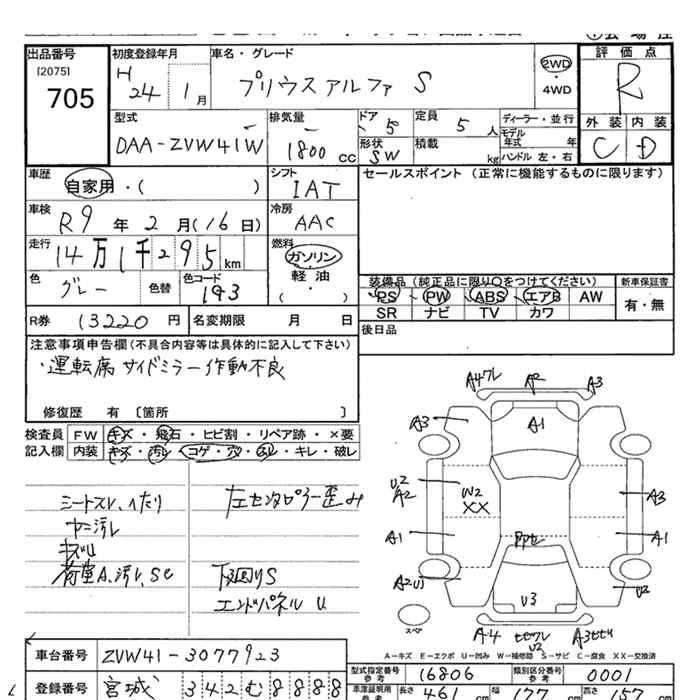 出品番号 初度登録年月 車名・グレード 2WD 評価点
12075 H 24 1月 プリウスアルファ S ・4WD R
705
型式 排気量 ドア 5 定員 5人 ディーラー・並行 外装 内装
DAA-ZVW41W 1800cc 形状 SW 積載 kg モデル年式 年 C D
ハンドル 左・右
車歴 自家用・( ) シフト IAT セールスポイント (正常に機能するものに限ります)
車検 R9年2月(16日) 冷房 AAC
走行 14万1千295km 燃料 ガソリン
軽油
( ・ )
色 グレー 色替 色コード 1G3 装備品 (純正品に限り○をつけてください) 新車保証書
RS PW ABS エアB AW 有・無
SR ナビ TV カワ
R券 13220円 名変期限 月 日 後日品
注意事項申告欄(不具合内容等は具体的に記入して下さい)
・運転席サイドミラー作動不良
修復歴 有 〔箇所 〕
検査員 FW キズ・飛石・ヒビ割・リペア跡・×要
記入欄 内装 キズ・汚レ・コゲ・穴・ヌレ・キレ・破レ
シートスレ、ヘたり 左センタピラー歪み
ヤニ汚レ
キズU
荷室A、汚レ、SC 下廻りS
エンドパネル U
A4ワレ A2 A3
A3 A1
U2
A2 W2
XX A3
A1 A1
A2U3 U3 U2
スペア A4 U2
A-キズ E-エクボ U-凹み W-補修跡 S-サビ C-腐食 XX-交換済
車台番号 ZVW41-3077923
型式指定番号 参考 16806 類別区分番号 参考 0001
登録番号 宮城 342 む 8888 車庫証明用 参考 長さ 461cm 幅 177cm 高さ 157cm